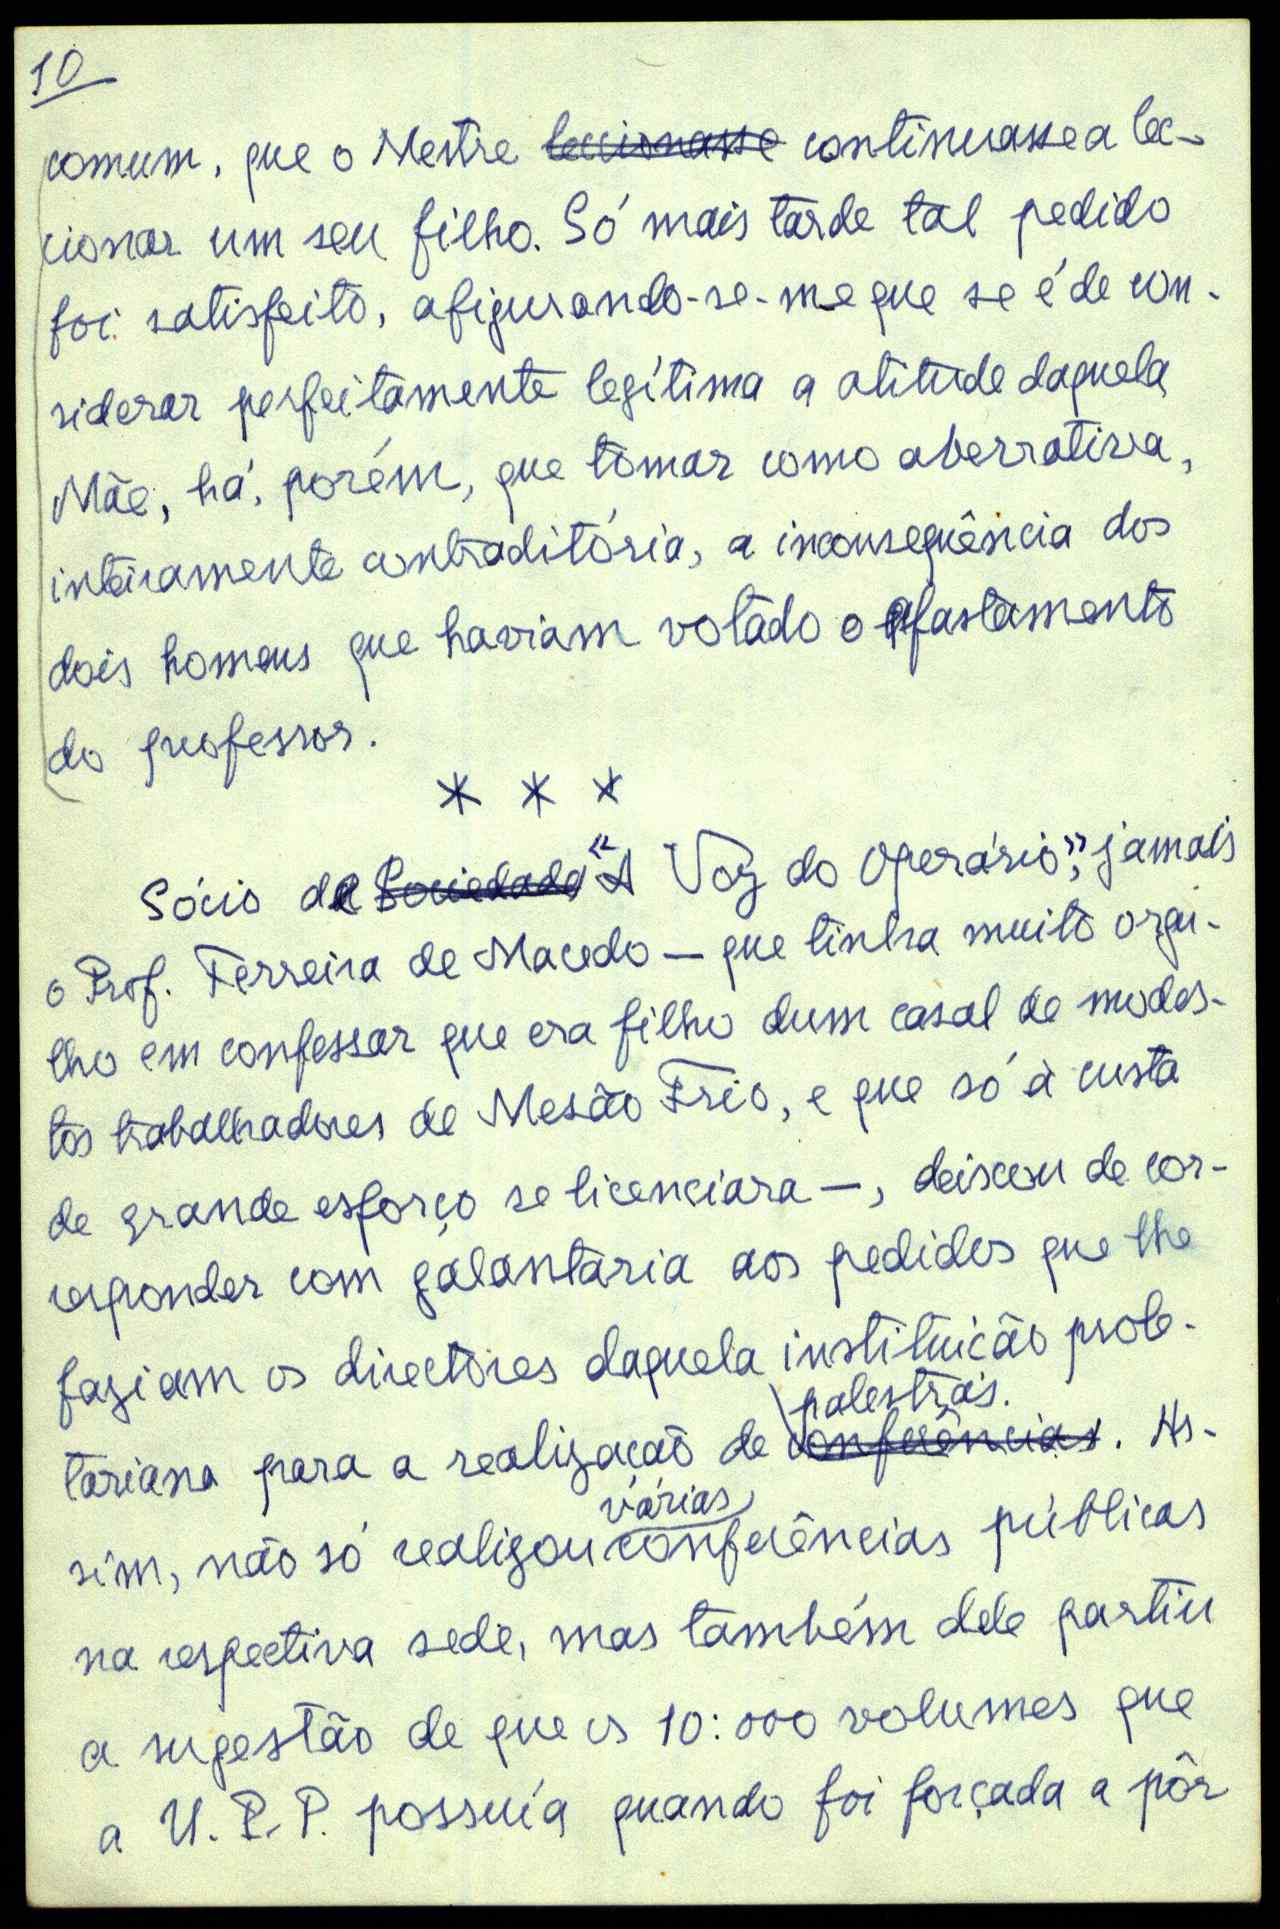 10
comum, que o Mestre leccionasse continuasse a lec-
cionar um seu filho. Só mais tarde tal pedido
foi satisfeito, afigurando-se-me que se é de con-
siderar perfeitamente legítima a atitude daquela
Mãe, há, porém, que tomar como aberrativa,
inteiramente contraditória, a inconsequência dos
dois homens que haviam votado o afastamento
do professor.
* * *
Sócio de Sociedade «A Voz do Operário», jamais
o Prof. Ferreira de Macedo — que tinha muito orgu-
lho em confessar que era filho dum casal de modes-
tos trabalhadores de Mesão Frio, e que só à custa
de grande esforço se licenciara —, deixou de cor-
responder com galantaria aos pedidos que lhe
faziam os directores daquela instituição prole-
palestras.
tariana para a realização de conferências. As-
várias
sim, não só realizou conferências públicas
na respectiva sede, mas também dele partiu
a sugestão de que os 10:000 volumes que
a U.P.P. possuía quando foi forçada a pôr